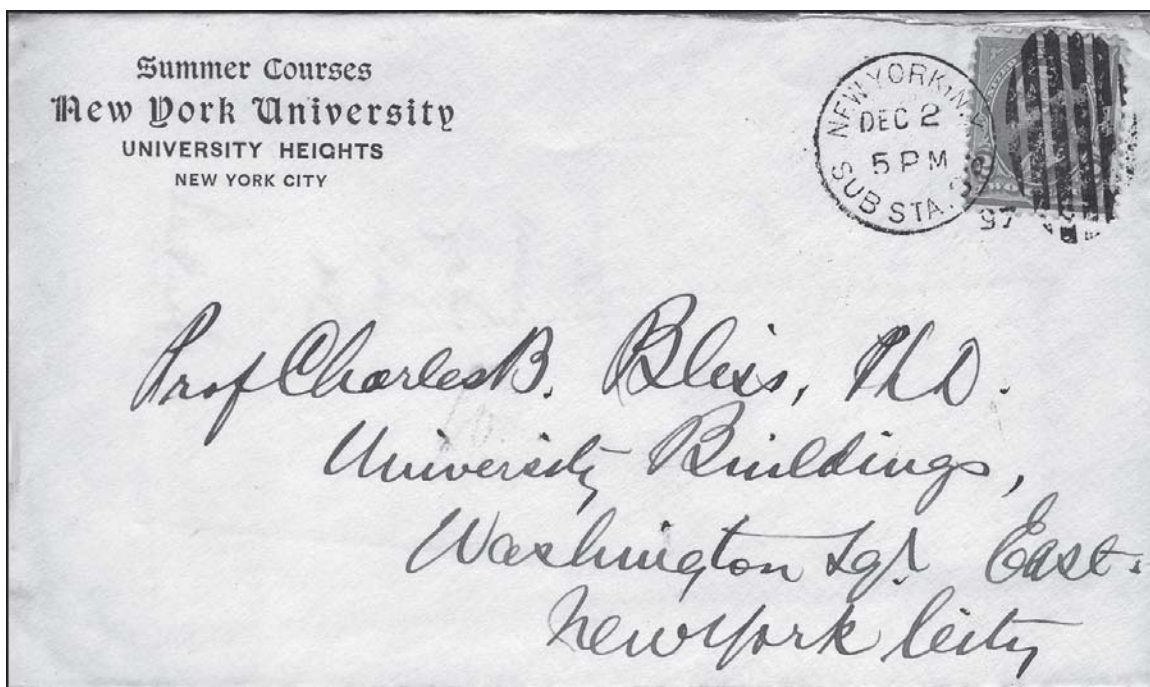 Summer Courses
New York University
UNIVERSITY HEIGHTS
NEW YORK CITY
NEW YORK, N.Y.
DEC 2
5 PM
SUB STA.
97
Prof Charles B. Bliss, PhD.
University Buildings,
Washington Sqr. East.
New York City